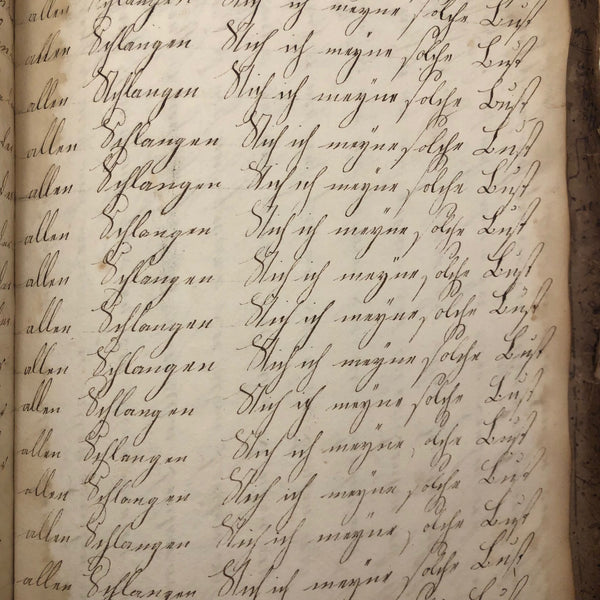 allen Schlangen Nich ich meyne solche Bust
allen Schlangen Nich ich meyne solche Bust
allen Schlangen Nich ich meyne solche Bust
allen Schlangen Nich ich meyne solche Bust
allen Schlangen Nich ich meyne solche Bust
allen Schlangen Nich ich meyne solche Bust
allen Schlangen Nich ich meyne solche Bust
allen Schlangen Nich ich meyne solche Bust
allen Schlangen Nich ich meyne solche Bust
allen Schlangen Nich ich meyne solche Bust
allen Schlangen Nich ich meyne olche Bust
allen Schlangen Nich ich meyne solche Bust
allen Schlangen Nich ich meyne olche Bust
allen Schlangen Nich ich meyne solche Bust